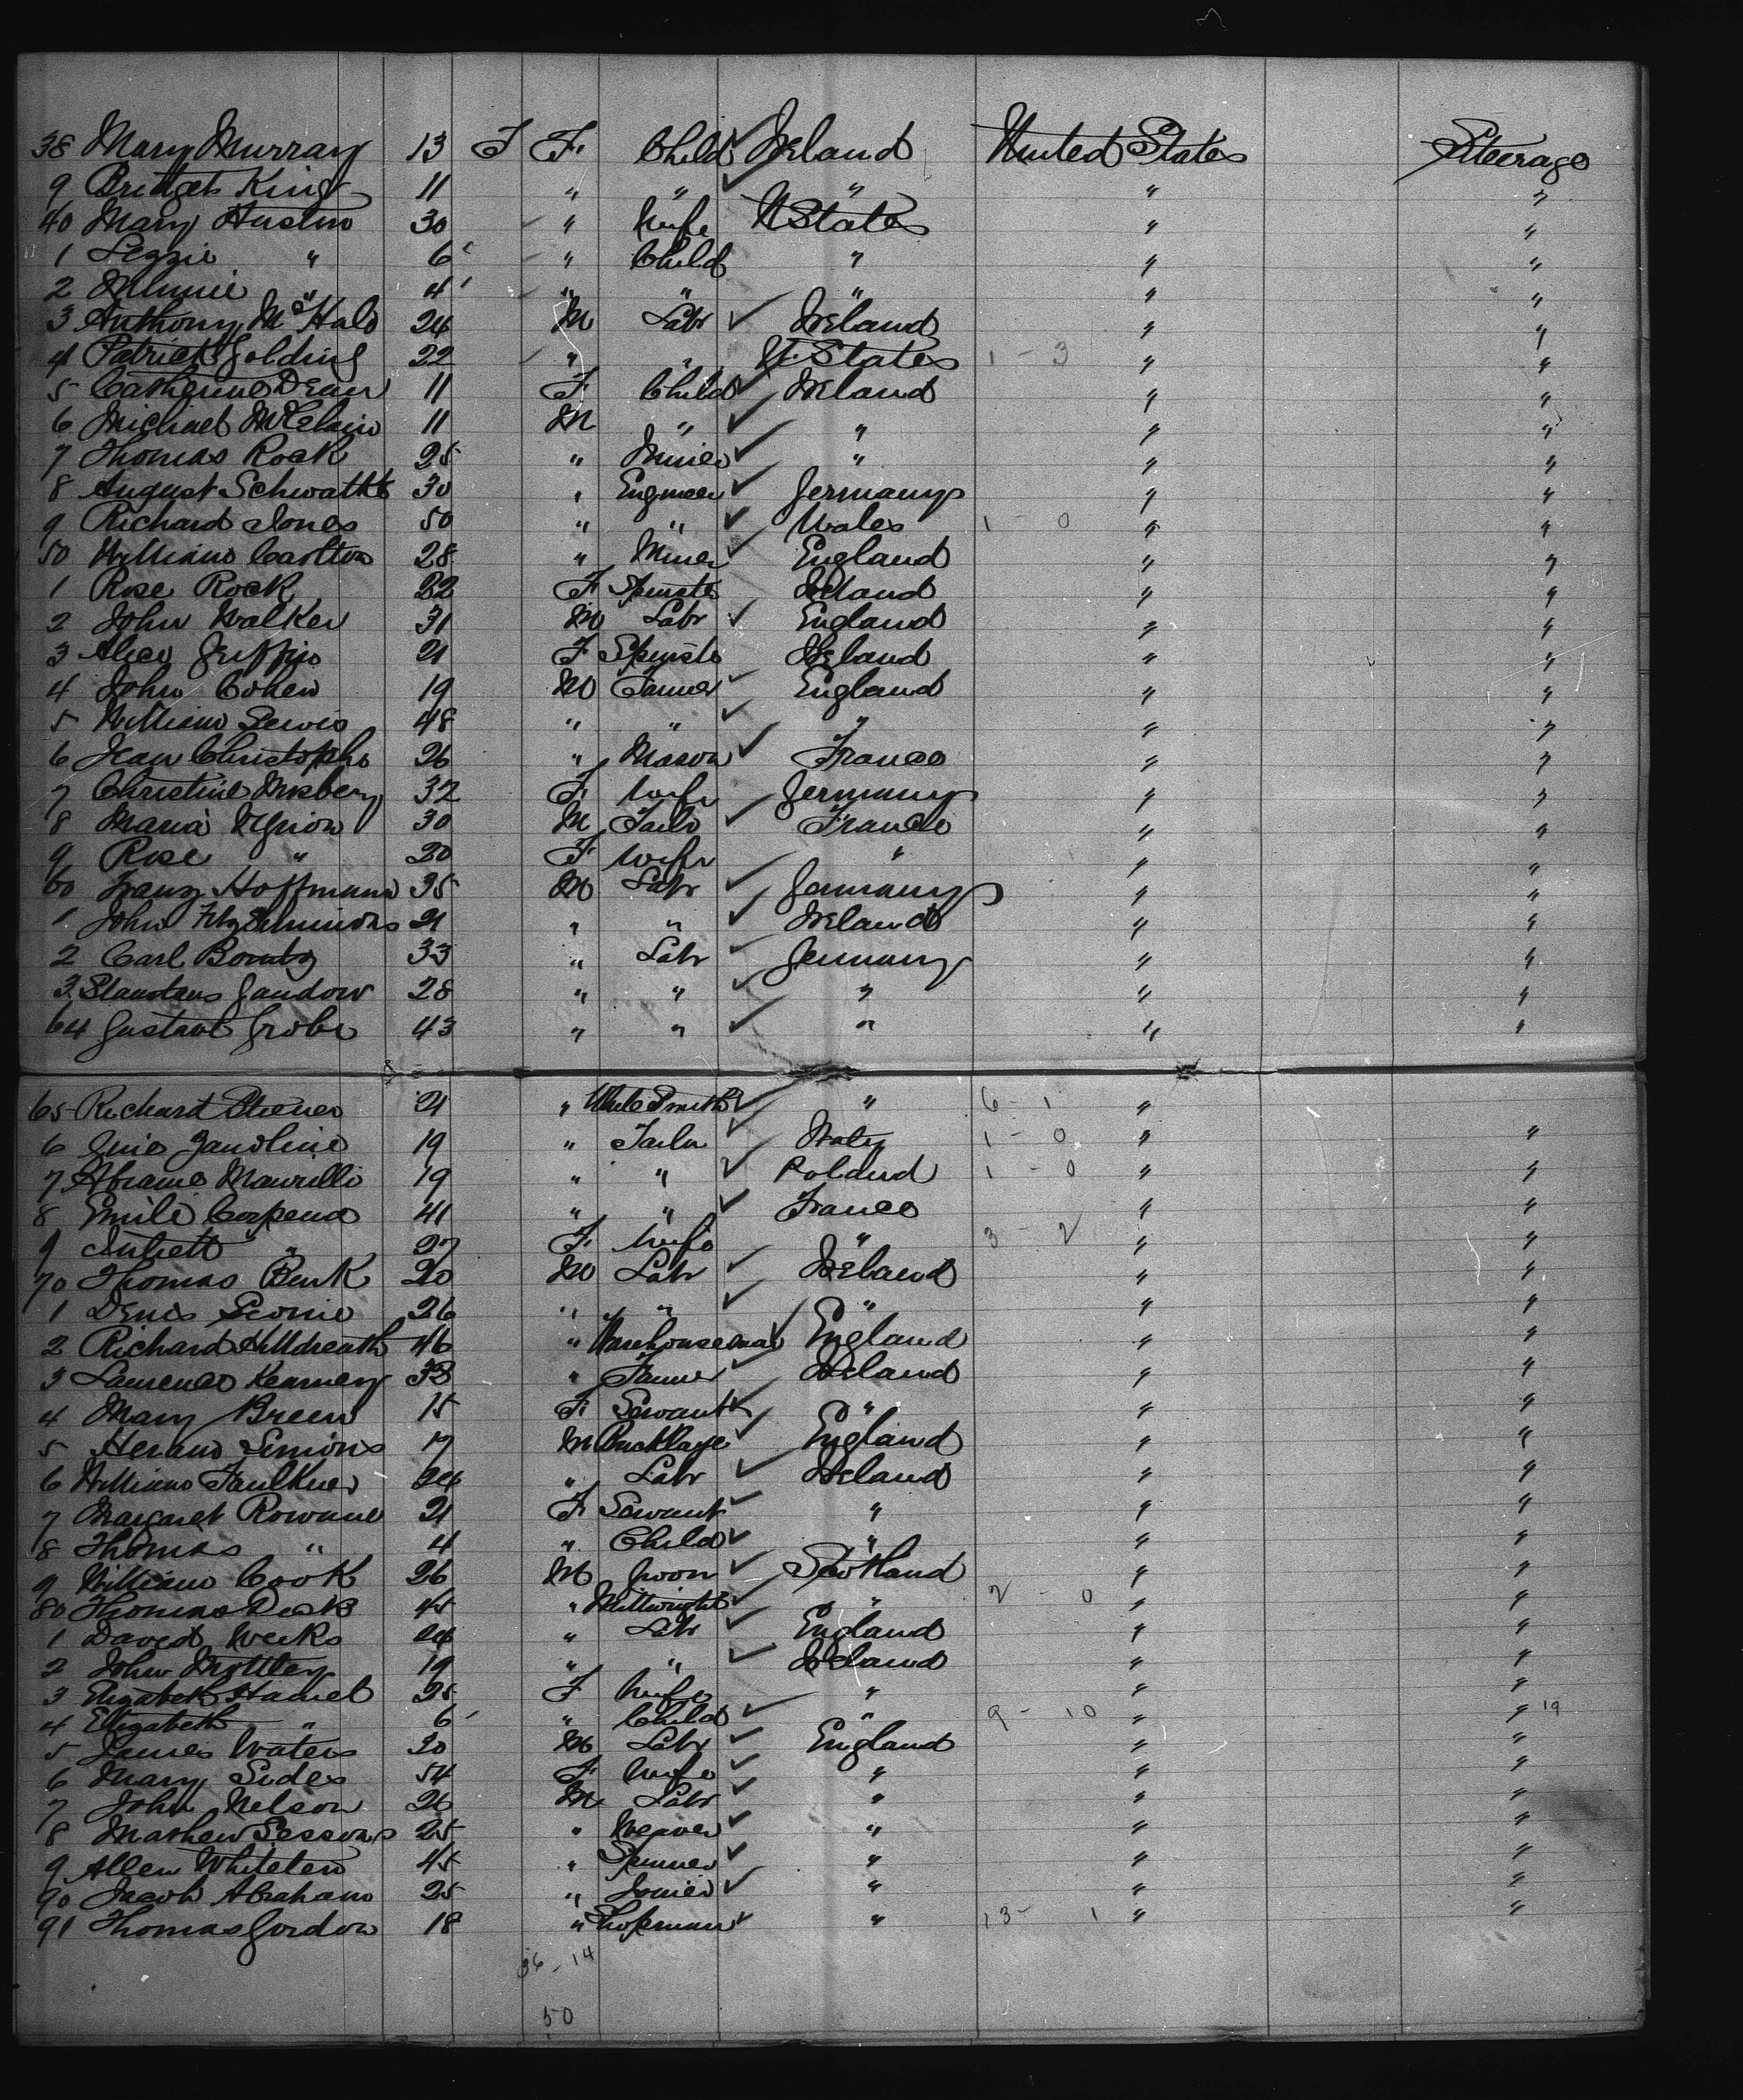 38 Mary Murray 13 F F. Child Ireland United States Steerage
9 Bridget King 11 " " " " "
40 Mary Austin 30 " Wife U States " "
1 Lezzie " 6 " Child " " "
2 Minnie " 4 " " " " "
3 Anthony McHale 24 M Labr Ireland " "
4 Patrick Golding 22 " " U. States 1 - 3 " "
5 Catherine Dean 11 F Child Ireland " "
6 Michael 11 M " " " "
7 Thomas Rock 25 " Miner " " "
8 August Schwattke 30 " Engineer Germany " "
9 Richard Jones 50 " " Wales 1 - 0 " "
50 William Carlton 28 " Miner England " "
1 Rose Rock 22 F Spinster Ireland " "
2 John Walker 31 M Labr England " "
3 Alice Griffin 21 F Spinstr Ireland " "
4 John Cohen 19 M Farmer England " "
5 William Lewis 48 " " " " "
6 Jean Christophe 26 " Mason France " "
7 Christine 32 F Wife Germany " "
8 Maria 30 M Tailr France " "
9 Rose " 20 F Wife " " "
60 Franz Hoffmann 35 M Labr Germany " "
1 John Fitzsimmons 21 " " Ireland " "
2 Carl 33 " Labr Germany " "
3 Gandow 28 " " " " "
64 Gustav Grobe 43 " " " " "
65 Richard 21 " White Smith " 6 - 1 "
6 19 " Tailr Italy 1 - 0 " "
7 19 " " Poland 1 - 0 " "
8 Emile 41 " " France " "
9 Juliett " 27 F. Wife " 3 - 2 " "
70 Thomas Burk 20 M Labr Ireland " "
1 Denis 26 " " " " "
2 Richard Hilldreath 46 " Warehouseman England " "
3 Laurence Kearney 33 " Farmer Ireland " "
4 Mary Breen 15 F. Servant " " "
5 Simons 17 M Bricklaye England " "
6 William Faulkner 24 " Labr Ireland " "
7 Margaret Rowane 21 F. Servant " " "
8 Thomas " 4 " Child " " "
9 William Cook 26 M Groom Scotland " "
80 Thomas 45 " Millwright " 2 - 0 " "
1 David Weeks 24 " Labr England " "
2 John Mottley 19 " " Ireland " "
3 Elizabeth Hamel 25 F Wife " " "
4 Elizabeth " 6 " Child " 9 - 10 " " 19
5 James Waters 20 M Labr England " "
6 Mary Sides 54 F Wife " " "
7 John Nelson 26 M Labr " " "
8 Mathew Sessons 25 " Weaver " " "
9 Allen Whiteten 45 " Spinner " " "
90 Jacob Abraham 25 " Joiner " " "
91 Thomas Gordon 18 " Shopman " 13 - 1 " "
36 - 14
50